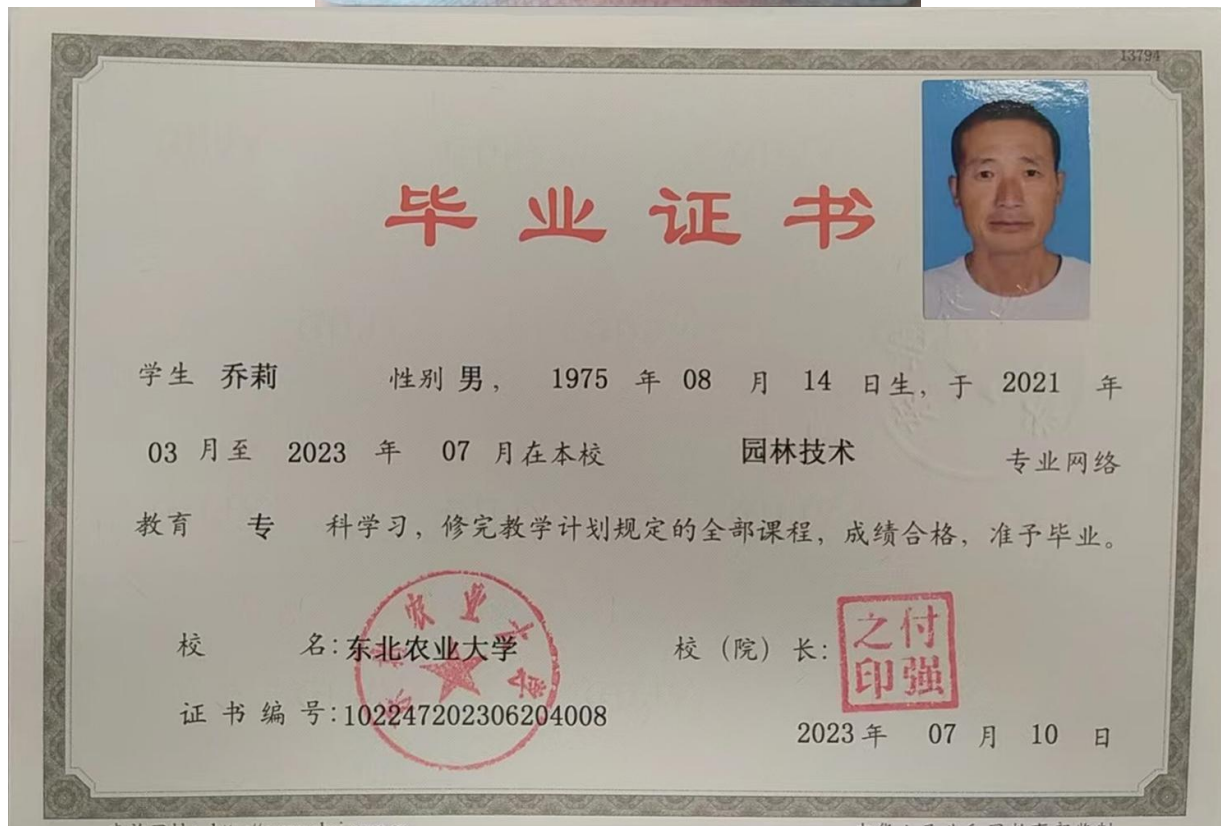 13794
毕业证书
学生 乔莉 性别 男， 1975 年 08 月 14 日生，于 2021 年
03 月至 2023 年 07 月在本校 园林技术 专业网络
教育 专 科学习，修完教学计划规定的全部课程，成绩合格，准予毕业。
校 名：东北农业大学 校（院）长：
付强之印
证书编号：102247202306204008
2023 年 07 月 10 日